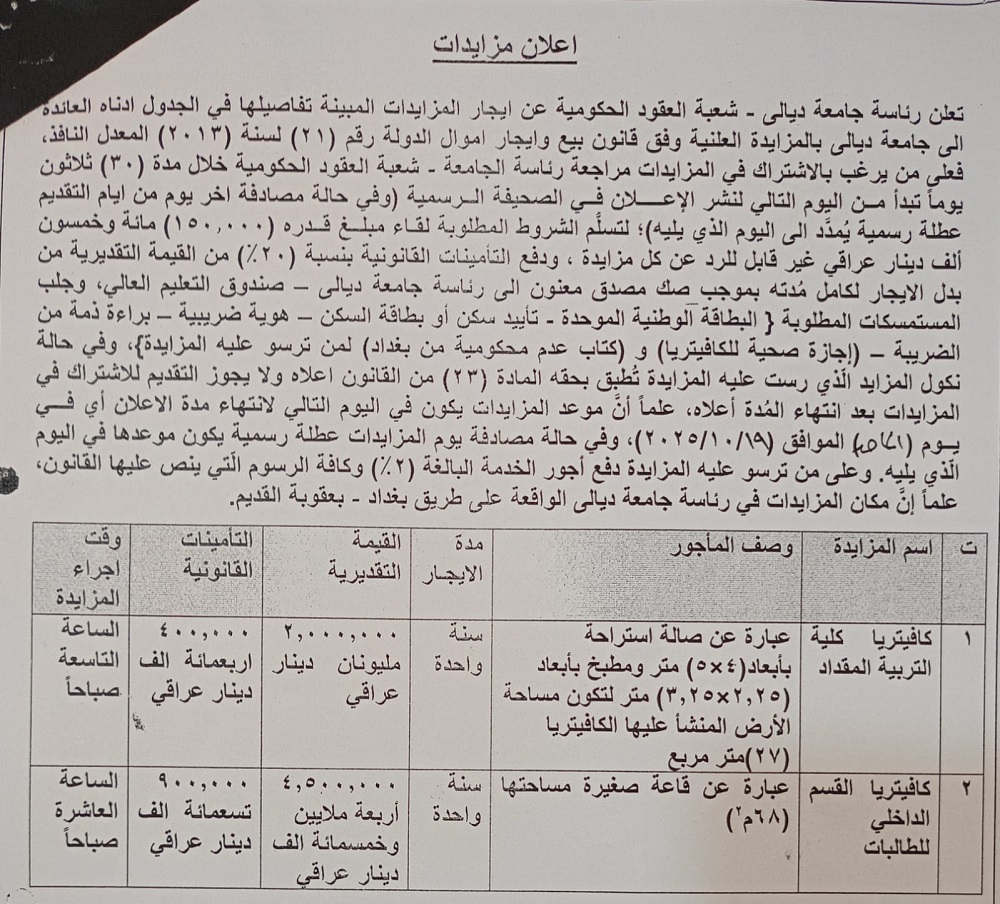 اعلان مزايدات
تعلن رئاسة جامعة ديالى - شعبة العقود الحكومية عن ايجار المزايدات المبينة تفاصيلها في الجدول ادناه العائدة
الى جامعة ديالى بالمزايدة العلنية وفق قانون بيع وايجار اموال الدولة رقم (٢١) لسنة (٢٠١٣) المعدل النافذ،
فعلى من يرغب بالاشتراك في المزايدات مراجعة رئاسة الجامعة - شعبة العقود الحكومية خلال مدة (٣٠) ثلاثون
يوماً تبدأ مـن اليوم التالي لنشر الإعـــلان فـي الصحيفة الـرسمية (وفي حالة مصادفة اخر يوم من ايام التقديم
عطلة رسمية يُمدَّد الى اليوم الذي يليه)؛ لتسلُّم الشروط المطلوبة لقاء مبلـغ قـدره (١٥٠,٠٠٠) مائة وخمسون
ألف دينار عراقي غير قابل للرد عن كل مزايدة ، ودفع التأمينات القانونية بنسبة (٢٠٪) من القيمة التقديرية من
بدل الايجار لكامل مُدته بموجب صك مصدق معنون الى رئاسة جامعة ديالى – صندوق التعليم العالي، وجلب
المستمسكات المطلوبة { البطاقة الوطنية الموحدة - تأييد سكن أو بطاقة السكن – هوية ضريبية – براءة ذمة من
الضريبة – (إجازة صحية للكافيتريا) و (كتاب عدم محكومية من بغداد) لمن ترسو عليه المزايدة}، وفي حالة
نكول المزايد الّذي رست عليه المزايدة تُطبق بحقه المادة (٢٣) من القانون اعلاه ولا يجوز التقديم للاشتراك في
المزايدات بعد انتهاء المُدة أعلاه، علماً أنَّ موعد المزايدات يكون في اليوم التالي لانتهاء مدة الاعلان أي فـــي
يـوم (الاحد) الموافق (٢٠٢٥/١٠/١٩)، وفي حالة مصادفة يوم المزايدات عطلة رسمية يكون موعدها في اليوم
الّذي يليه. وعلى من ترسو عليه المزايدة دفع أجور الخدمة البالغة (٢٪) وكافة الرسوم الّتي ينص عليها القانون،
علماً إنَّ مكان المزايدات في رئاسة جامعة ديالى الواقعة على طريق بغداد - بعقوبة القديم.
ت اسم المزايدة وصف المأجور مدة القيمة التأمينات وقت
الايجار التقديرية القانونية اجراء
المزايدة
١ كافيتريا كلية عبارة عن صالة استراحة سنة ٢,٠٠٠,٠٠٠ ٤٠٠,٠٠٠ الساعة
التربية المقداد بأبعاد(٤×٥) متر ومطبخ بأبعاد واحدة مليونان دينار اربعمائة الف التاسعة
(٢,٢٥×٣,٢٥) متر لتكون مساحة عراقي دينار عراقي صباحاً
الأرض المنشأ عليها الكافيتريا
(٢٧)متر مربع
٢ كافيتريا القسم عبارة عن قاعة صغيرة مساحتها سنة ٤,٥٠٠,٠٠٠ ٩٠٠,٠٠٠ الساعة
الداخلي (٦٨م٢) واحدة أربعة ملايين تسعمائة الف العاشرة
للطالبات وخمسمائة الف دينار عراقي صباحاً
دينار عراقي